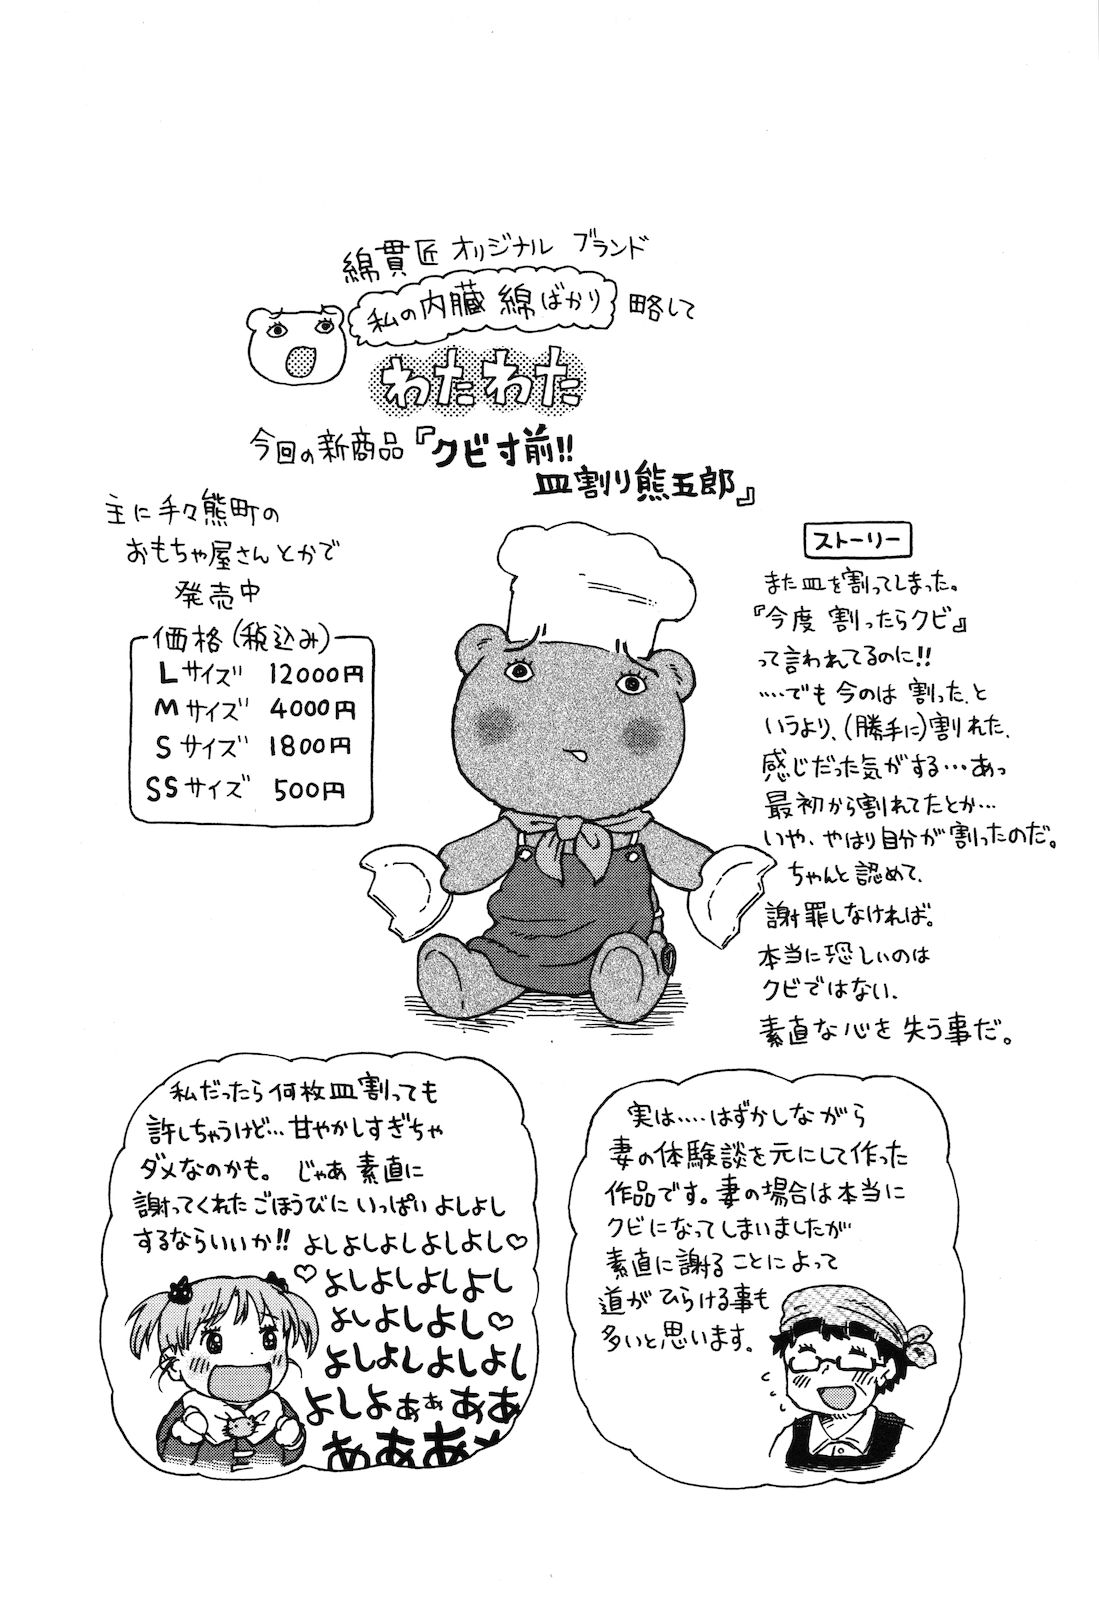 綿貫匠 オリジナル ブランド
私の内臓 綿ばかり 略して
わたわた
今回の新商品『クビ寸前!!
皿割り熊五郎』
主に手々熊町の
おもちゃ屋さんとかで
発売中
価格(税込み)
Lサイズ 12000円
Mサイズ 4000円
Sサイズ 1800円
SSサイズ 500円
ストーリー
また皿を割ってしまった。
『今度 割ったらクビ』
って言われてるのに!!
……でも 今のは 割った、と
いうより、(勝手に)割れた、
感じだった気がする…あっ
最初から割れてたとか…
いや、やはり自分が割ったのだ。
ちゃんと認めて、
謝罪しなければ。
本当に恐しいのは
クビではない、
素直な心を失う事だ。
私だったら何枚皿割っても
許しちゃうけど…甘やかしすぎちゃ
ダメなのかも。じゃあ素直に
謝ってくれたごほうびにいっぱいよしよし
するならいいか!! よしよしよしよしよし♡
♡よしよしよしよし
よしよしよし♡
よしよしよしよし
よしよぁぁぁああ
ああああ
実は……はずかしながら
妻の体験談を元にして作った
作品です。妻の場合は本当に
クビになってしまいましたが
素直に謝ることによって
道がひらける事も
多いと思います。